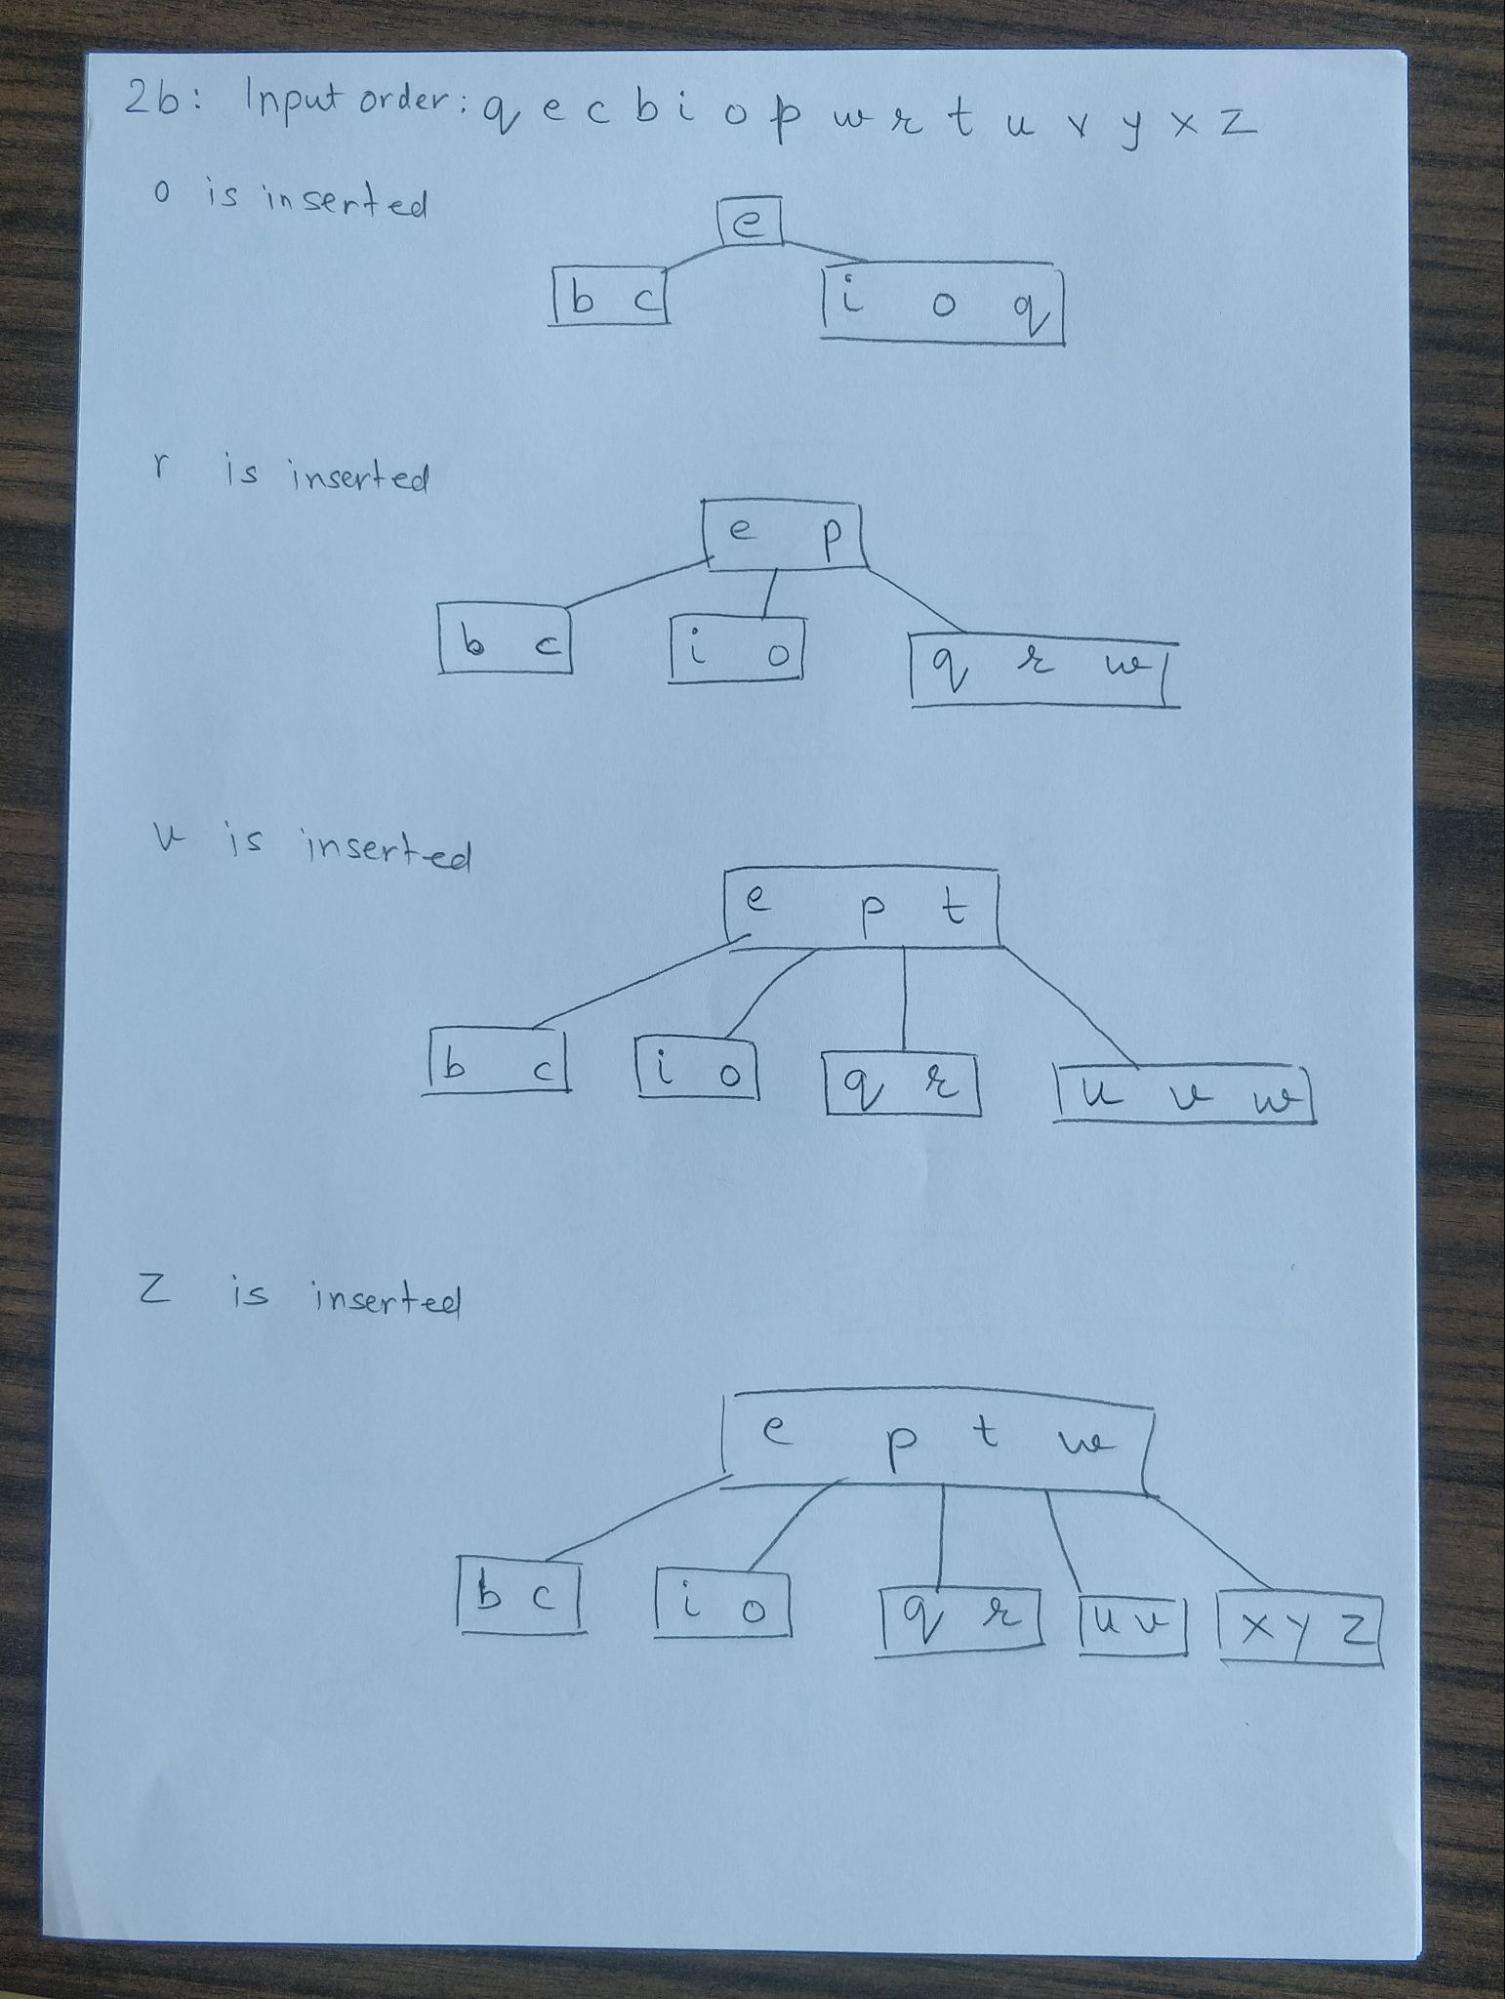 2b: Input order: q e c b i o p w r t u v y x z
o is inserted
e
b c i o q
r is inserted
e p
b c i o q r w
v is inserted
e p t
b c i o q r u v w
z is inserted
e p t w
b c i o q r u v x y z